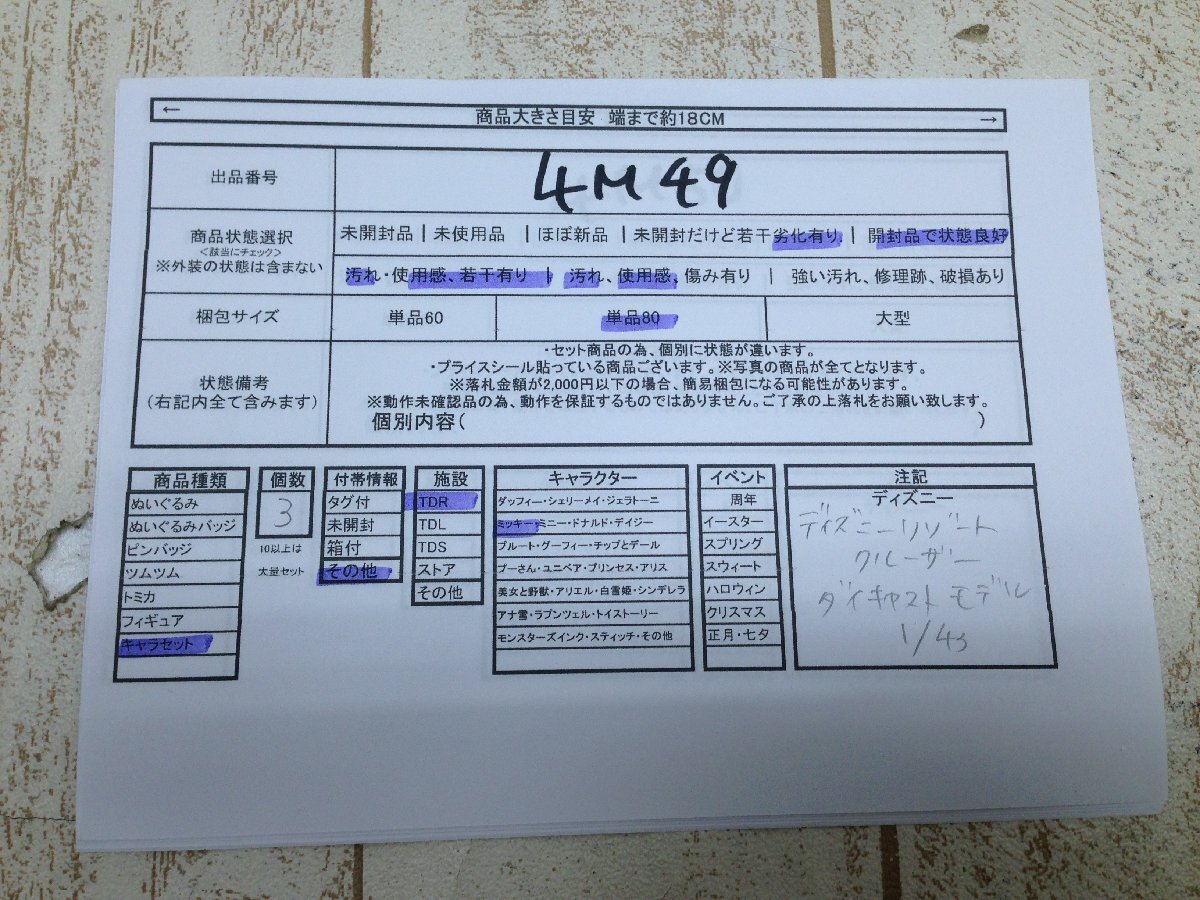 ← 商品大きさ目安 端まで約18CM →
出品番号 4M49
商品状態選択
<該当にチェック>
※外装の状態は含まない
未開封品 | 未使用品 | ほぼ新品 | 未開封だけど若干劣化有り | 開封品で状態良好
汚れ・使用感、若干有り | 汚れ、使用感、傷み有り | 強い汚れ、修理跡、破損あり
梱包サイズ 単品60 単品80 大型
状態備考
(右記内全て含みます)
・セット商品の為、個別に状態が違います。
・プライスシール貼っている商品ございます。※写真の商品が全てとなります。
※落札金額が2,000円以下の場合、簡易梱包になる可能性があります。
※動作未確認品の為、動作を保証するものではありません。ご了承の上落札をお願い致します。
個別内容( )
商品種類
ぬいぐるみ
ぬいぐるみバッジ
ピンバッジ
ツムツム
トミカ
フィギュア
キャラセット
個数
3
10以上は
大量セット
付帯情報
タグ付
未開封
箱付
その他
施設
TDR
TDL
TDS
ストア
その他
キャラクター
ダッフィー・シェリーメイ・ジェラトーニ
ミッキー・ミニー・ドナルド・デイジー
プルート・グーフィー・チップとデール
プーさん・ユニベア・プリンセス・アリス
美女と野獣・アリエル・白雪姫・シンデレラ
アナ雪・ラプンツェル・トイストーリー
モンスターズインク・スティッチ・その他
イベント
周年
イースター
スプリング
スウィート
ハロウィン
クリスマス
正月・七夕
注記
ディズニー
ディズニーリゾート
クルーザー
ダイキャストモデル
1/43